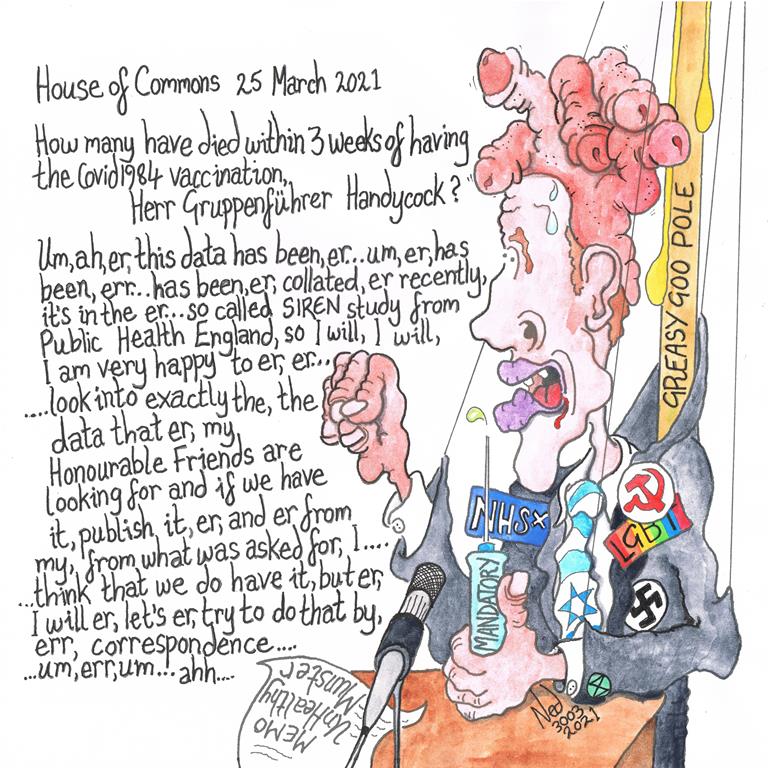 House of Commons 25 March 2021
How many have died within 3 weeks of having
the Covid1984 vaccination,
Herr Gruppenführer Handycock?
Um, ah, er, this data has been, er...um, er, has
been, err...has been, er, collated, er recently,
it's in the er...so called SIREN study from
Public Health England, so I will, I will,
I am very happy to er, er...
....look into exactly the, the
data that er, my
Honourable Friends are
looking for and if we have
it, publish it, er, and er from
my, from what was asked for, I....
...think that we do have it, but er,
I will er, let's er, try to do that by,
err, correspondence....
...um, err, um... ahh....
GREASY GOO POLE
NHSx
LGBT
MANDATORY
MEMO
UnHealthy
Munster
Ned
3003
2021